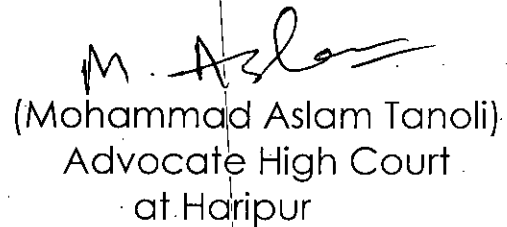 M. Aslam
(Mohammad Aslam Tanoli)
Advocate High Court
at Haripur